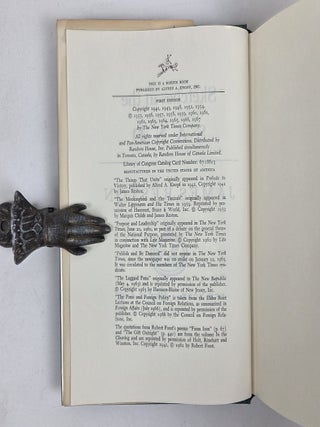 THIS IS A BORZOI BOOK
PUBLISHED BY ALFRED A. KNOPF, INC.
FIRST EDITION
Copyright 1941, 1943, 1948, 1952, 1954
by The New York Times Company.
All rights reserved under International
and Pan-American Copyright Conventions. Distributed by
Random House, Inc. Published simultaneously
in Toronto, Canada, by Random House of Canada Limited.
Library of Congress Catalog Card Number:
MANUFACTURED IN THE UNITED STATES OF AMERICA
"The Things That Unite" originally appeared in Prelude to
Victory, published by Alfred A. Knopf in 1942. Copyright 1942
by James Reston.
"The Mockingbird and the Taxicab" originally appeared in
Walter Lippmann and His Times in 1959. Reprinted by per-
mission of Harcourt, Brace & World, Inc. © 1959
by Marquis Childs and James Reston.
"Purpose and Leadership" originally appeared in The New York
Times, June 20, 1960, as part of a debate on the general theme
of the National Purpose, presented by The New York Times
in conjunction with Life Magazine. Copyright 1960 by Life
Magazine and The New York Times Company.
"Publish and Be Damned" did not appear in The New York
Times, since the newspaper was on strike on January 12, 1963.
It was circulated to the members of The New York Times news
service.
"The Lugged Pote" originally appeared in The New Republic
(May 4, 1963) and is reprinted by permission of the publisher.
© Copyright 1963 by Harrison-Blaine of New Jersey, Inc.
"The Press and Foreign Policy" is taken from the Elihu Root
Lectures at the Council on Foreign Relations, as summarized in
Foreign Affairs (July 1966), and is reprinted by permission of
the publisher. Copyright 1966 by the Council on Foreign Rela-
tions, Inc.
The quotations from Robert Frost's poems
and "The Gift Outright" are from the volume In the
Clearing and are reprinted by permission of Holt, Rinehart and
Winston, Inc. Copyright 1942, © 1962 by Robert Frost.